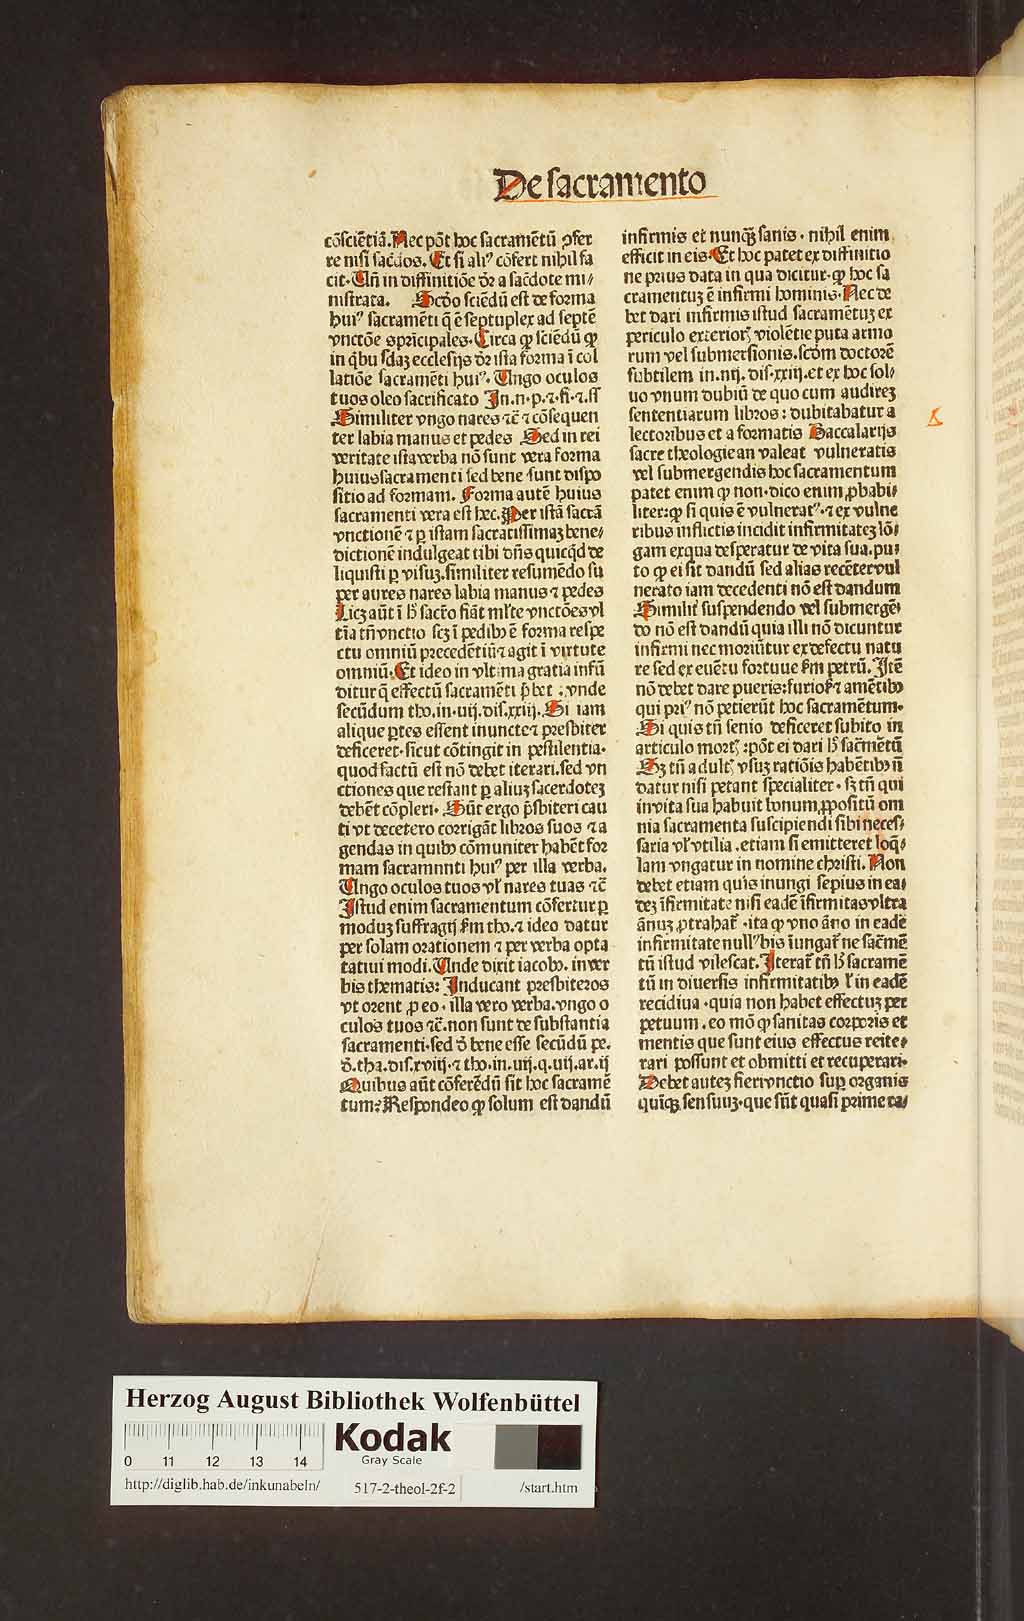 De sacramento
cōsciētiā. Nec pōt hoc sacramētū ꝯfer
re nisi sac̄dos. Et si aliꝰ cōfert nihil fa
cit. Un̄ in diffinitiōe dr̄ a sac̄dote mi⸗
nistrata. Scd̄o sciēdū est de forma
huiꝰ sacramēti q̄ ē septuplex ad septē
vnctōe sp̄ricipales. Circa qͥ sciēdū ꝙ
in qͥbu sdaꝫ ecclesijs dr̄ ista forma ī col
latiōe sacramēti huiꝰ. Ungo oculos
tuos oleo sacrificato In.n.p.⁊.fi.⁊.ss
Similiter vngo nares ⁊c̄ ⁊ cōsequen
ter labia manus et pedes Sed in rei
veritate ista verba nō sunt vera forma
huius sacramenti sed bene sunt dispo
sitio ad formam. Forma autē huius
sacramenti vera est hec. Per istā sacrā
vnctionē ⁊ ꝑ istam sacratissimaꝫ bene⸗
dictionē indulgeat tibi dn̄s quicqͥd de
liquisti ꝑ visuꝫ. similiter resumēdo su
per aures nares labia manus ⁊ pedes
Licꝫ aūt ī hͦ sacr̄o fiāt ml̓te vnctōes vl
tīa tn̄ vnctio scꝫ ī pedibꝰ ē forma respe
ctu omniū precedētiū ⁊ agit ī virtute
omniū. Et ideo in vltima gratia infū
ditur q̄ effectū sacramēti p̄bet . vnde
secūdum tho. in .iiij. dis. xxiij. Si iam
alique ꝑtes essent inuncte ⁊ presbiter
deficeret. sicut cōtingit in pestilentia.
quod factū est nō debet iterari. sed vn
ctiones que restant ꝑ aliuꝫ sacerdoteꝫ
debēt cōpleri. Sūt ergo p̄sbiteri cau
ti vt decetero corrigāt libros suos ⁊ a
gendas in quibꝰ cōmuniter habēt for
mam sacramnnti huiꝰ per illa verba.
Ungo oculos tuos vl̓ nares tuas ⁊c̄
Istud enim sacramentum cōfertur ꝑ
moduꝫ suffragij ẜm tho. ⁊ ideo datur
per solam orationem ⁊ per verba opta
tatiui modi. Unde dixit iacobꝰ. in ver
bis thematis: Inducant presbiteros
vt orent ꝓ eo. illa vero verba. vngo o
culos tuos ⁊c̄. non sunt de substantia
sacramenti. sed d̄ bene esse secūdū pe.
d̄. tha. dis. xviij. ⁊ tho. in. iiij. q. iiij. ar. ij
Quibus aūt cōferēdū sit hoc sacramē
tum? Respondeo ꝙ solum est dandū
infirmis et nunqͣꝫ sanis. nihil enim
efficit in eis. Et hoc patet ex diffinitio
ne prius data in qua dicitur. ꝙ hoc sa
cramentuꝫ ē infirmi hominis. Nec de
bet dari infirmis istud sacramētuꝫ ex
periculo exteriorꝭ violētie puta armo
rum vel submersionis. scd̄m doctorē
subtilem in. iiij. dis. xxiij. et ex hoc sol⸗
uo vnum dubiū de quo cum audireꝫ
sententiarum libros: dubitabatur a
lectoribus et a formatis Baccalarijs
sacre theologie an valeat vulneratis
vel submergendis hoc sacramentum
patet enim ꝙ non. dico enim ꝓbabi⸗
liter: ꝙ si quis ē vulneratꝰ. ⁊ ex vulne
ribus inflictis incidit infirmitateꝫ lō⸗
gam ex qua desperatur de vita sua. pu⸗
to ꝙ ei sit dandū sed alias recēter vul
nerato iam decedenti nō est dandum
Similir̄ suspendendo vel submergē⸗
do nō est dandū quia illi nō dicuntur
infirmi nec moriūtur ex defectu natu
re sed ex euētu fortuue ẜm petrū. Itē
nō debet dare pueris: furiosꝭ ⁊ amētibꝰ
qui priꝰ nō petierūt hoc sacramētum.
Si quis tn̄ senio deficeret subito in
articulo mortꝭ: pōt ei dari hͦ sacr̄mētū
Sꝫ tn̄ adultꝭ vsuꝫ ratiōis habētibꝰ n̄
datur nisi petant specialiter. sꝫ tn̄ qui
in vita sua habuit bonum ꝓpositū om
nia sacramenta suscipiendi sibi neces⸗
saria vl̓ vtilia. etiam si emitteret loq̄⸗
lam vngatur in nomine christi. Non
debet etiam quis inungi sepius in ea⸗
deꝫ īfirmitate nisi eadē īfirmitas vltra
ānuꝫ ꝓtrahat̄. ita ꝙ vno āno in eadē
infirmitate nullꝰ bis īungat̄ ne sac̄mē
tū istud vilescat. Iterat̄ tn̄ hͦ sacramē
tū in diuersis infirmitatibꝰ vl̓ in eadē
recidiua. quia non habet effectuꝫ per
petuum. eo mō ꝙ sanitas corporis et
mentis que sunt eius effectus reite⸗
rari possunt et obmitti et recuperari.
Debet auteꝫ fieri vnctio suꝑ organis
quīqꝫ sensuuꝫ. que sūt quasi prime ra⸗
Herzog August Bibliothek Wolfenbüttel
0 11 12 13 14
Kodak
Gray Scale
http://diglib.hab.de/inkunabeln/
517-2-theol-2f-2
/start.htm